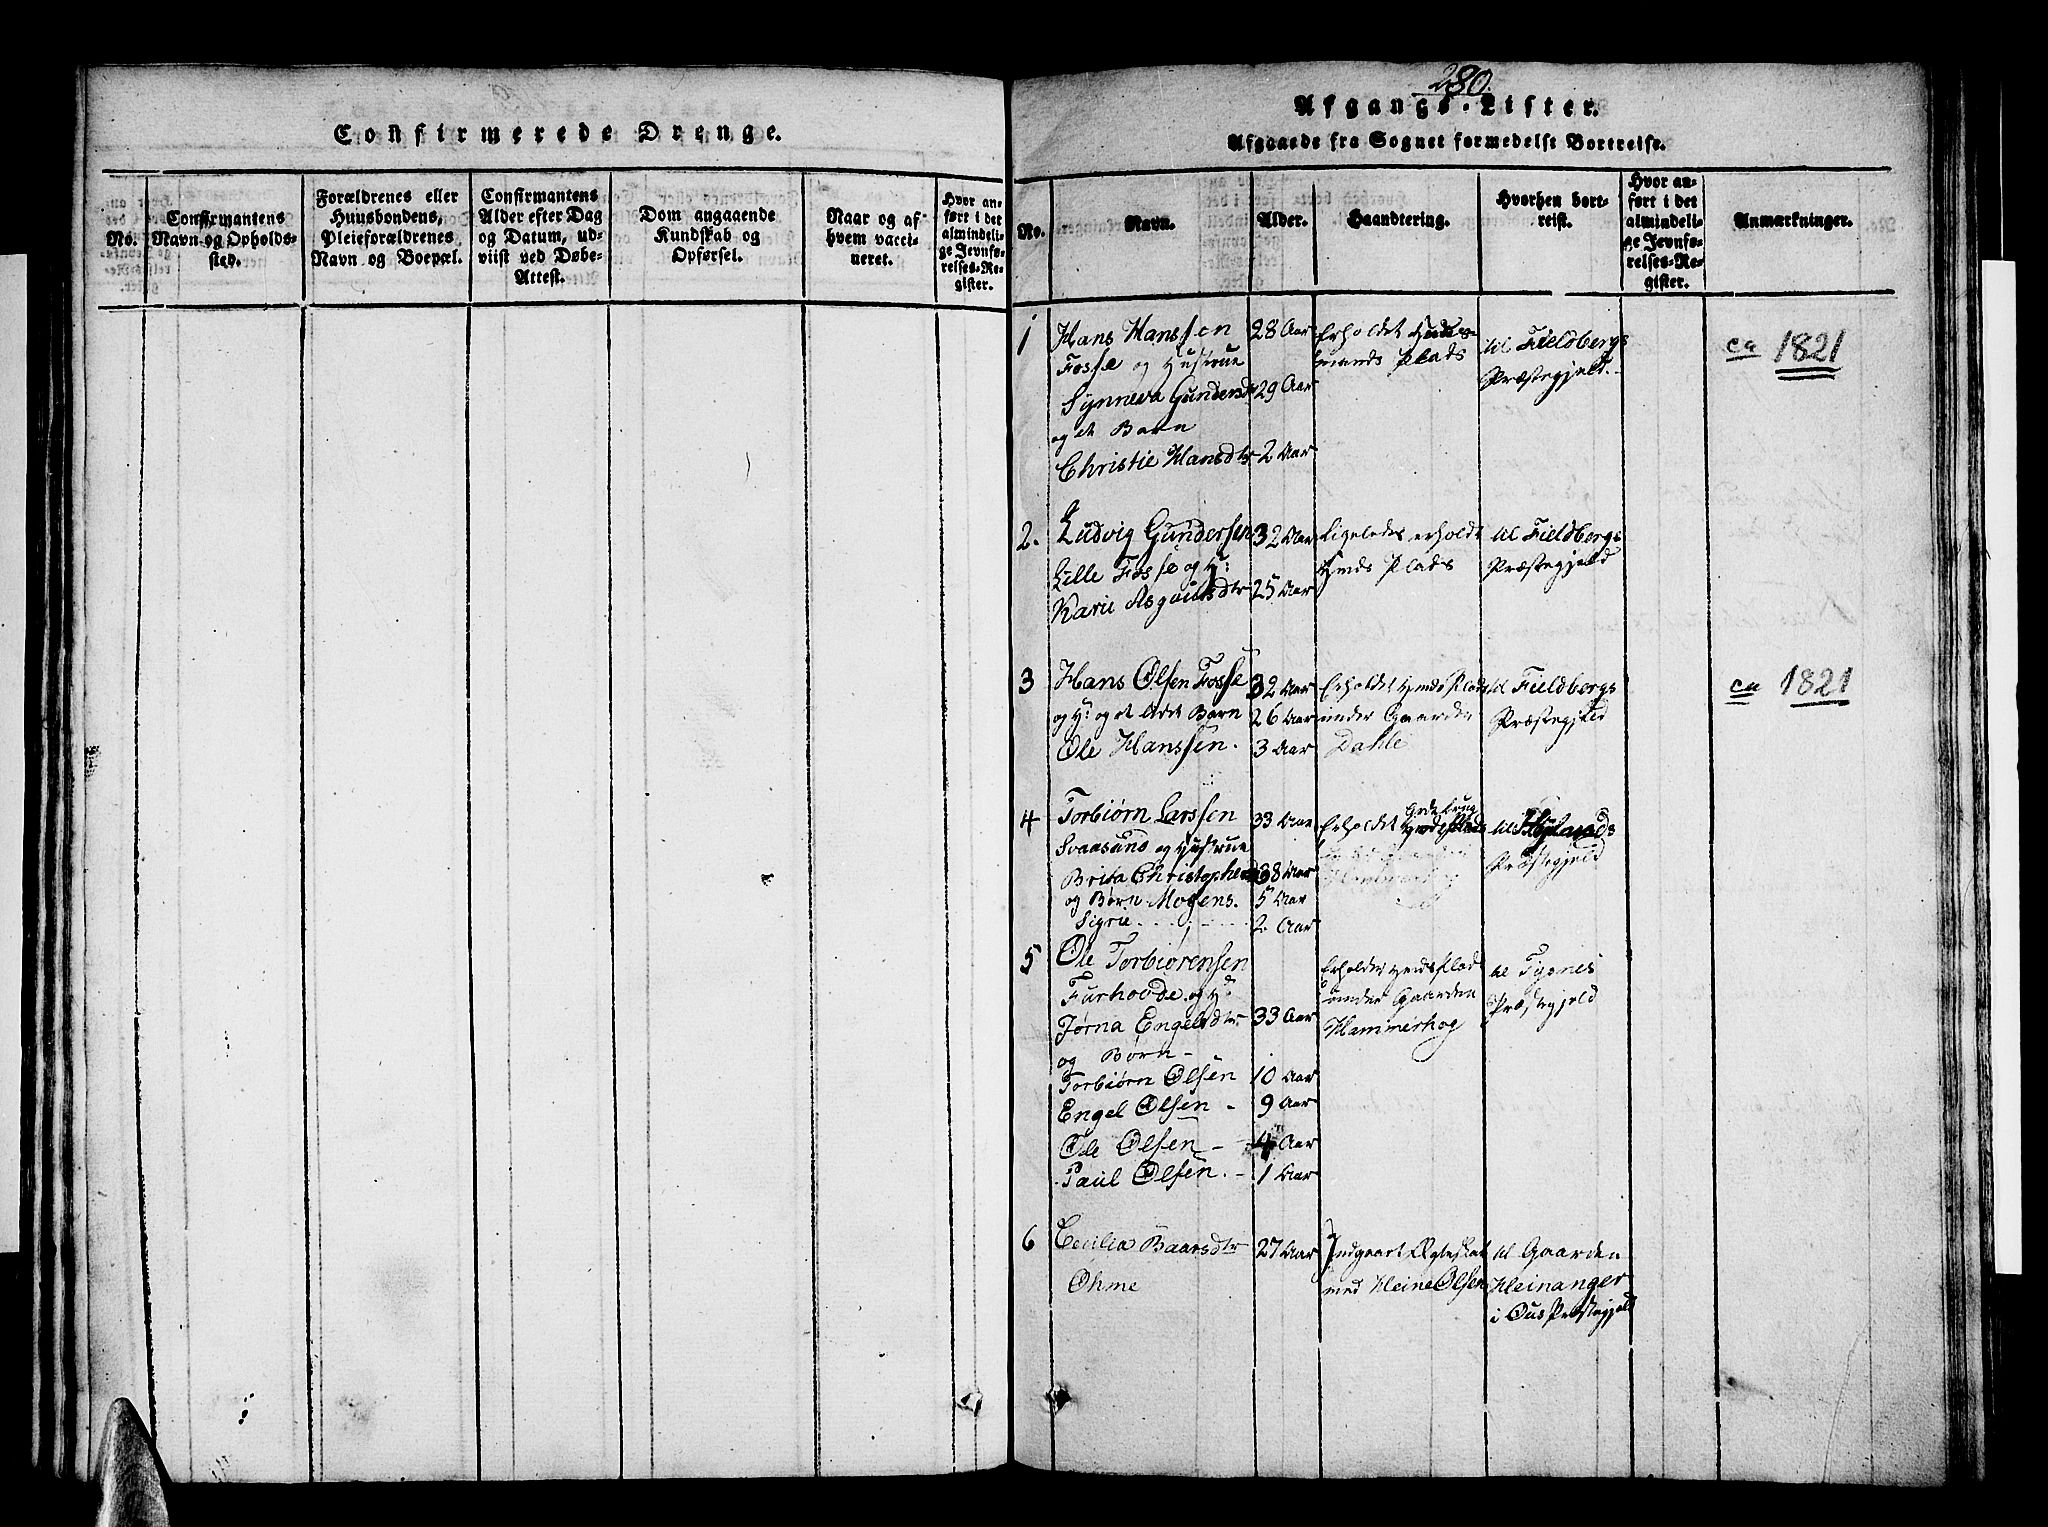 Confirmerede Drenge.
No.
Confirmantens
Navn og Opholds-
sted.
Forældrenes eller
Huusbondens,
Pleieforældrenes
Navn og Boepæl.
Confirmantens
Alder efter Dag
og Datum, ud-
viist ved Døbe-
Attest.
Dom angaaende
Kundskab og
Opførsel.
Naar og af
hvem vacci-
neret.
Hvor an-
ført i det
almindeli-
ge Jevnfø-
relses-Re-
gister.
280.
Afgangs-Lister.
Afgaaede fra Sognet formedelst Bortreise.
No.
Navn.
Alder.
Haandtering.
Hvorhen bort-
reist.
Hvor an-
ført i det
almindeli-
ge Jevnfø-
relses-Re-
gister.
Anmærkninger.
1 Hans Hanssen 28 Aar Erholdet til Fieldbergs ca 1821
Fosse og Hustrue mands Plads Præstegjeld.
Synneva Gundersdr 29 Aar
og et Barn
Christie Hansdtr 2 Aar
2. Ludvig Gundersen 32 Aar Ligeledes erholdt til Fieldbergs
Lille Fosse og H: Hmds Plads Præstegjeld
Karie Asgautsdtr 25 Aar
3 Hans Olsen Fosse 32 Aar Erholdet Hmds Plads til Fieldbergs ca 1821
og H: og et Barn 26 Aar under Gaarden Præstegjeld
Ole Hanssen. 3 Aar Dahle
4 Torbiørn Larssen 33 Aar Erholdet til
Svaasand og Hustrue Præstegjeld
Brita Christophersd 38 Aar
og Børn Mogens. 5 Aar
Sigrie 2 Aar
5 Ole Torbiørensen Erholdet Hmds Plads til Tysnes
Furhovde og H: under Gaarden Præstegjeld
Jørna Engelsdtr 33 Aar Hammerhog
og Børn -
Torbiørn Olsen 10 Aar
Engel Olsen - 9 Aar
Ole Olsen - 4 Aar
Paul Olsen. - 1 Aar
6 Cecilia Baarsdtr 27 Aar Indgaaet Ægteskab til Gaarden
Ohme med Heine Olsen Heinanger
i Ous Præstegjeld